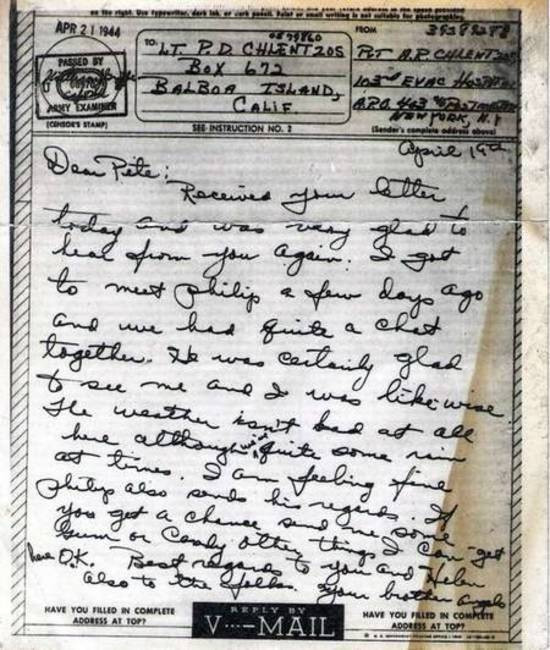 APR 21 1944
PASSED BY
ARMY EXAMINER
(CENSOR'S STAMP)
TO
LT. P.D. CHLENTZOS
BOX 672
BALBOA ISLAND,
CALIF.
SEE INSTRUCTION NO. 2
FROM
PVT A.P. CHLENTZOS
103rd EVAC HOSPITAL
A.P.O. 403 % POSTMASTER
NEW YORK, N.Y
(Sender's complete address above)
April 19th
Dear Pete:
Received your letter
today and was very glad to
hear from you again. I got
to meet Philip a few days ago
and we had quite a chat
together. He was certainly glad
to see me and I was likewise.
The weather isn't bad at all
here although quite some rain
at times. I am feeling fine
Philip also sends his regards. If
you get a chance send me some
gum or candy other things I can get
here O.K. Best regards to you and Helen
also to the folks. Your brother Angelo
HAVE YOU FILLED IN COMPLETE
ADDRESS AT TOP?
REPLY BY
V···—MAIL
HAVE YOU FILLED IN COMPLETE
ADDRESS AT TOP?